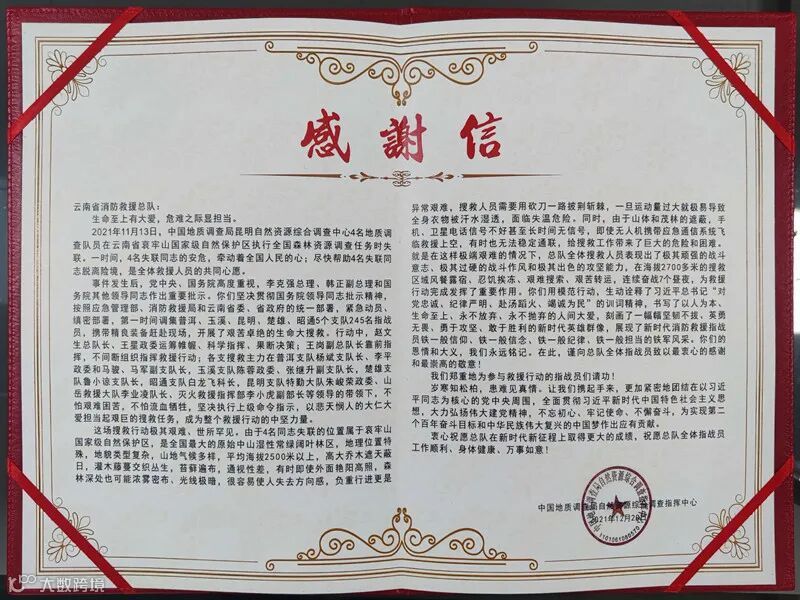 感謝信
云南省消防救援总队：
生命至上有大爱，危难之际显担当。
2021年11月13日，中国地质调查局昆明自然资源综合调查中心4名地质调
查队员在云南省哀牢山国家级自然保护区执行全国森林资源调查任务时失
联。一时间，4名失联同志的安危，牵动着全国人民的心；尽快帮助4名失联同
志脱离险境，是全体救援人员的共同心愿。
事件发生后，党中央、国务院高度重视，李克强总理、韩正副总理和国
务院其他领导同志作出重要批示。你们坚决贯彻国务院领导同志批示精神，
按照应急管理部、消防救援局和云南省委、省政府的统一部署，紧急动员、
缜密部署，第一时间调集普洱、玉溪、昆明、楚雄、昭通5个支队245名指战
员，携带精良装备赶赴现场，开展了艰苦卓绝的生命大搜救。行动中，赵文
生总队长、王星政委运筹帷幄、科学指挥、果断决策；王岗副总队长靠前指
挥，不间断组织指挥救援行动；各支搜救主力在普洱支队杨斌支队长、李平
政委和马骏、马军副支队长，玉溪支队陈蓉政委、张继升副支队长，楚雄支
队鲁小谅支队长，昭通支队白龙飞科长，昆明支队特勤大队朱峻荣政委、山
岳救援大队李业凌队长、灭火救援指挥部李小虎副部长等领导的带领下，不
怕艰难困苦，不怕流血牺牲，坚决执行上级命令指示，以悲天悯人的大仁大
爱担当起艰巨的搜救任务，成为整个救援行动的中坚力量。
这场搜救行动极其艰难、世所罕见。由于4名同志失联的位置属于哀牢山
国家级自然保护区，是全国最大的原始中山湿性常绿阔叶林区，地理位置特
殊，地貌类型复杂，山地气候多样，平均海拔2500米以上，高大乔木遮天蔽
日，灌木藤蔓交织丛生，苔藓遍布，通视性差，有时即使外面艳阳高照，森
林深处也可能浓雾密布、光线极暗，很容易使人失去方向感，负重行进更是
异常艰难，搜救人员需要用砍刀一路披荆斩棘，一旦运动量过大就极易导致
全身衣物被汗水湿透，面临失温危险。同时，由于山体和茂林的遮蔽，手
机、卫星电话信号不好甚至长时间无信号，即使无人机携带应急通信系统飞
临救援上空，有时也无法稳定通联，给搜救工作带来了巨大的危险和困难。
就是在这样极端艰难的情况下，总队全体搜救人员表现出了极其顽强的战斗
意志、极其过硬的战斗作风和极其出色的攻坚能力，在海拔2700多米的搜救
区域风餐露宿、忍饥挨冻、艰难搜索、艰苦转运，连续奋战7个昼夜，为救援
行动完成发挥了重要作用。你们用模范行动，生动诠释了习近平总书记“对
党忠诚、纪律严明、赴汤蹈火、竭诚为民”的训词精神，书写了以人为本、
生命至上，永不放弃、永不抛弃的人间大爱，刻画了一幅幅坚韧不拔、英勇
无畏、勇于攻坚、敢于胜利的新时代英雄群像，展现了新时代消防救援指战
员铁一般信仰、铁一般信念、铁一般纪律、铁一般担当的铁军风采。你们的
恩情和大义，我们永远铭记。在此，谨向总队全体指战员致以最衷心的感谢
和最崇高的敬意！
我们郑重地为参与救援行动的指战员们请功！
岁寒知松柏，患难见真情。让我们携起手来，更加紧密地团结在以习近
平同志为核心的党中央周围，全面贯彻习近平新时代中国特色社会主义思
想，大力弘扬伟大建党精神，不忘初心、牢记使命、不懈奋斗，为实现第二
个百年奋斗目标和中华民族伟大复兴的中国梦作出应有贡献。
衷心祝愿总队在新时代新征程上取得更大的成绩，祝愿总队全体指战员
工作顺利、身体健康、万事如意！
中国地质调查局自然资源综合调查指挥中心
2021年12月20日
大数跨境